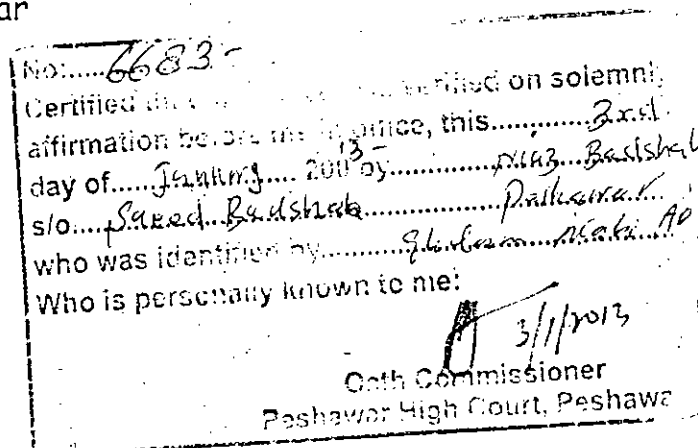 ar
No:.....6683-
Certified verified on solemnly
affirmation before me in office, this.............3rd
day of......January.... 2013- by.................Niaz Badshah
s/o....Saeed Badshah.......................Peshawar
who was identified by................Ghulam Nabi Ad
Who is personally known to me:
3/1/2013
Oath Commissioner
Peshawar High Court, Peshawa